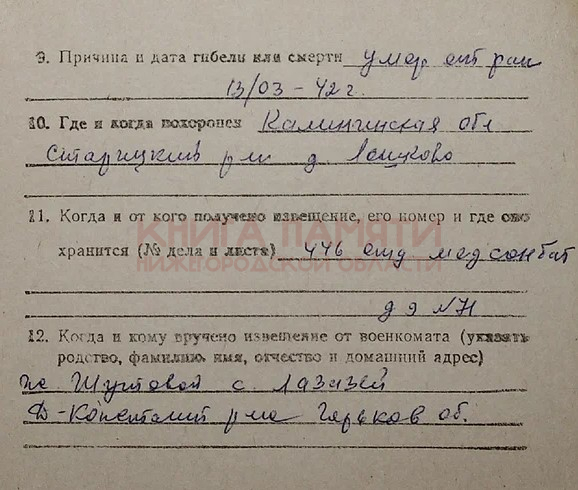 9. Причина и дата гибели или смерти умер от ран
13/03-42 г.
10. Где и когда похоронен Калининская обл
Старицкий р-н д.
11. Когда и от кого получено извещение, его номер и где оно
КНИГА ПАМЯТИ
хранится (№ дела и листа) 446 отд медсанбат
НИЖЕГОРОДСКОЙ ОБЛАСТИ
д 9 №
12. Когда и кому вручено извещение от военкомата (указать
родство, фамилию, имя, отчество и домашний адрес)
Шутовой с. Лазазей
Д-Константин р-на Горьков об.